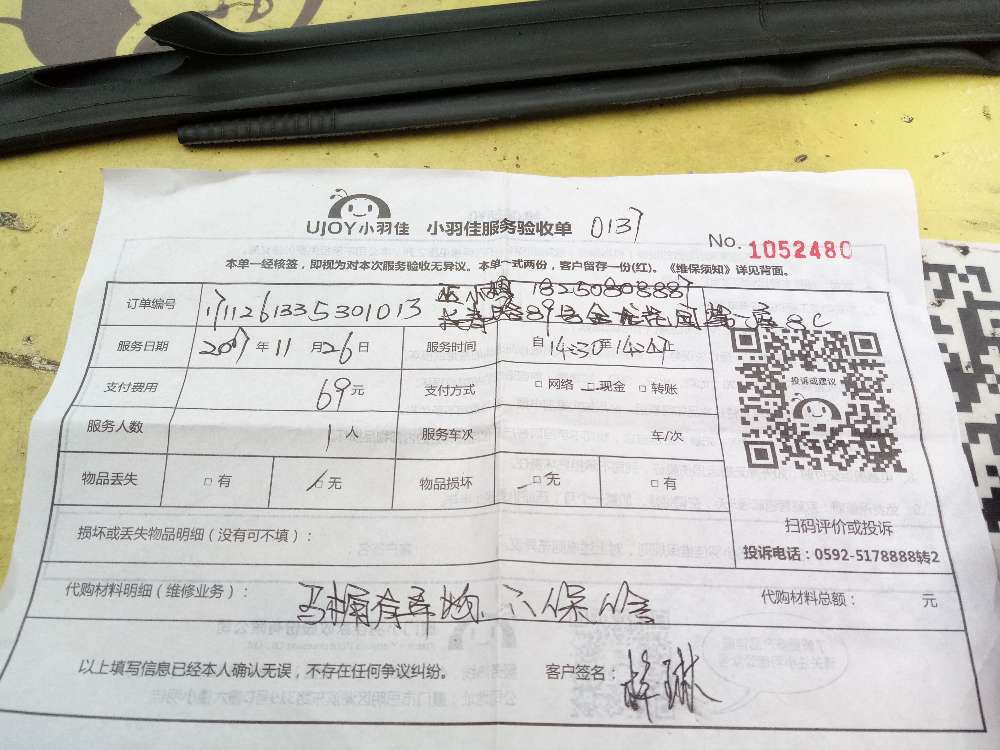 UJOY小羽佳 小羽佳服务验收单 0137
No. 1052480
本单一经核签，即视为对本次服务验收无异议。本单一式两份，客户留存一份(红)。《维保须知》详见背面。
订单编号 1711261335301013 18250808887
服务日期 2017年11月26日 服务时间 自14:30至
支付费用 69元 支付方式 □ 网络 □ 现金 □ 转账
服务人数 1人 服务车次 车/次
投诉或建议
物品丢失 □ 有 □ 无 物品损坏 □ 无 □ 有
扫码评价或投诉
损坏或丢失物品明细（没有可不填）：
投诉电话：0592-5178888转2
代购材料明细（维修业务）： 马桶 不保修 代购材料总额： 元
以上填写信息已经本人确认无误，不存在任何争议纠纷。 客户签名： 琳